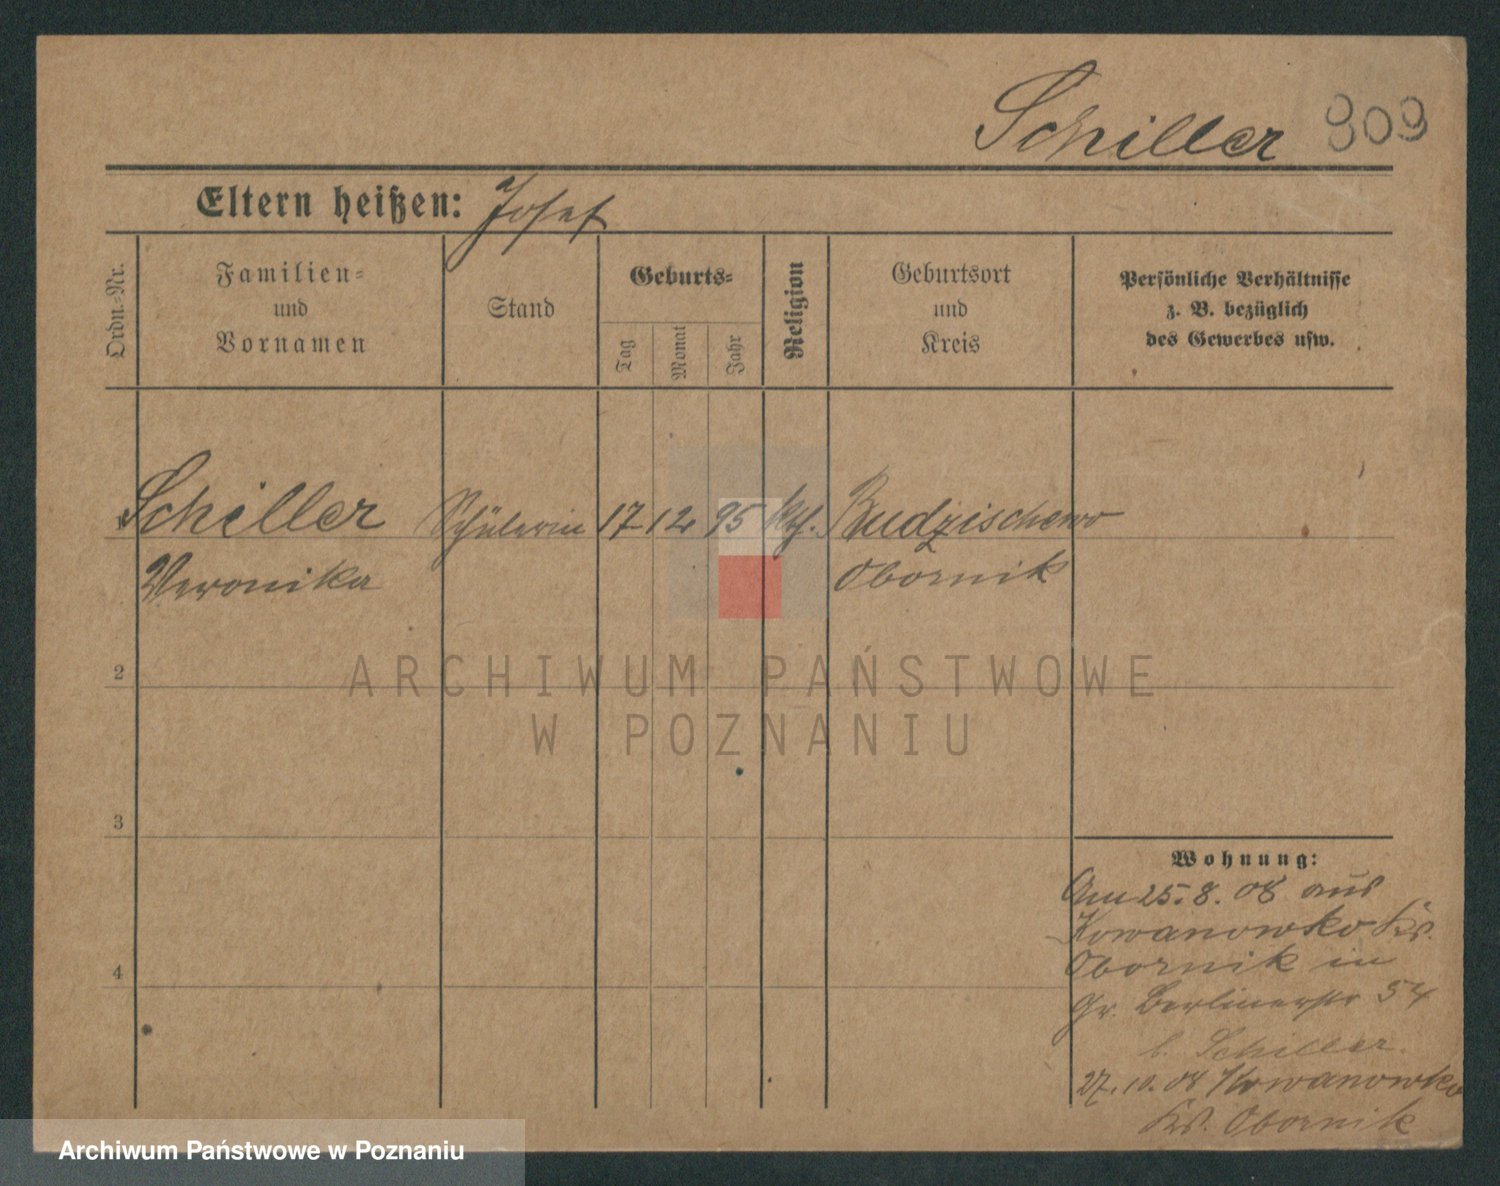 Schiller 909
Eltern heißen: Josef
Ordn.-Nr.
Familien-
und
Vornamen
Stand
Geburts-
Tag
Monat
Jahr
Religion
Geburtsort
und
Kreis
Persönliche Verhältnisse
z. B. bezüglich
des Gewerbes usw.
Schiller Schülerin 17 12 95 kth. Budzischewo
Veronika Obornik
2
ARCHIWUM PAŃSTWOWE
W POZNANIU
3
4
Wohnung:
Am 25. 8. 08 aus
Kowanowko Kr.
Obornik in
Gr. Berlinerstr 54
b. Schiller.
27. 10. 08 Kowanowko
Kr. Obornik
Archiwum Państwowe w Poznaniu